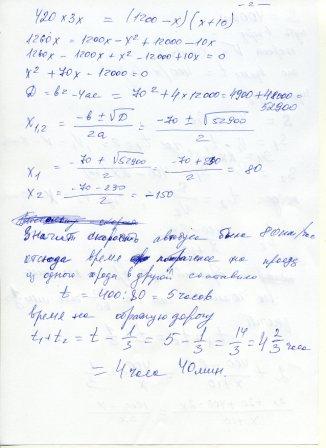 - 2 -
420 x 3x = (1200 - x)(x+10)
1260x = 1200x - x² + 12000 - 10x
1260x - 1200x + x² - 12000 + 10x = 0
x² + 70x - 12000 = 0
D = в² - 4ac = 70² + 4 x 12000 = 4900 + 48000 = 52900
x1,2 = -в ± √D / 2a = -70 ± √52900 / 2
x1 = -70 + √52900 / 2 = -70 + 230 / 2 = 80
x2 = -70 - 230 / 2 = -150
Значит скорость автобуса была 80 км/час
отсюда время потраченое на проезд
из одного города в другой составило
t = 400 : 80 = 5 часов
время на обратную дорогу
t1 + t2 = t - 1/3 = 5 - 1/3 = 14/3 = 4 2/3 часа
= 4 часа 40 мин.